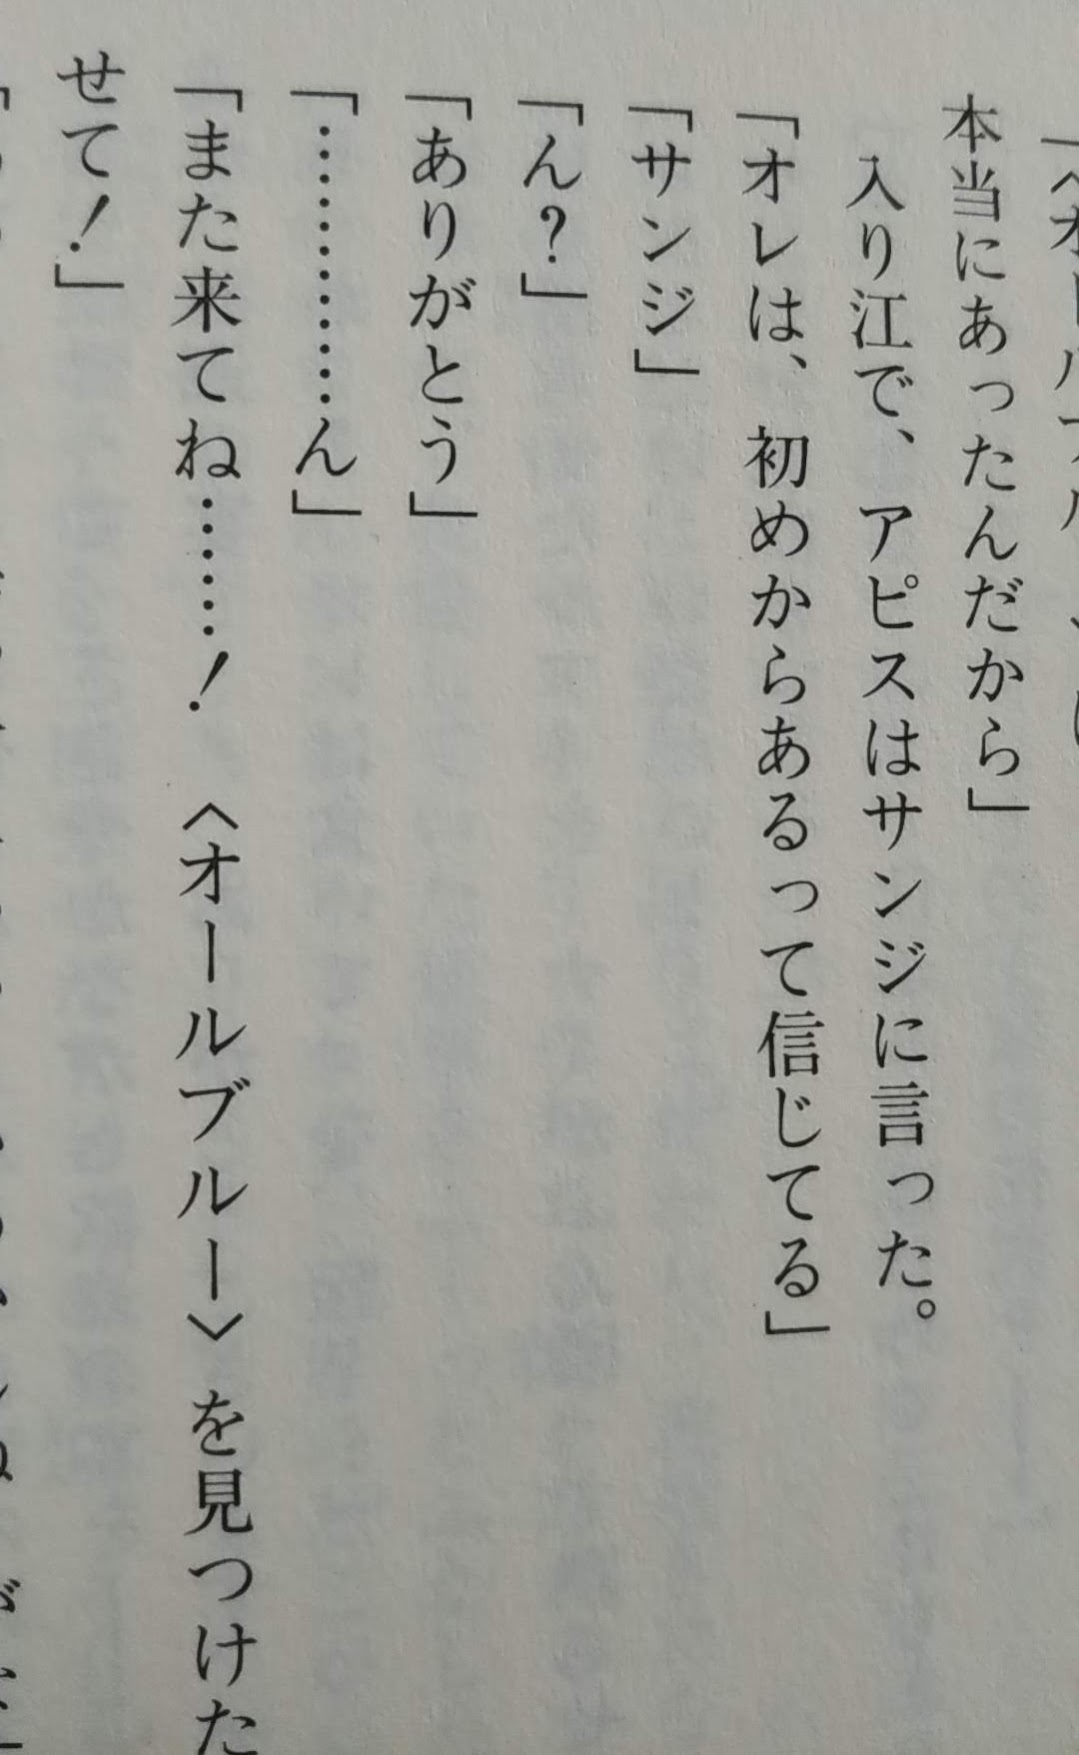 本当にあったんだから」
入り江で、アピスはサンジに言った。
「オレは、初めからあるって信じてる」
「サンジ」
「ん?」
「ありがとう」
「…………ん」
「また来てね……! 〈オールブルー〉を見つけた
せて!」